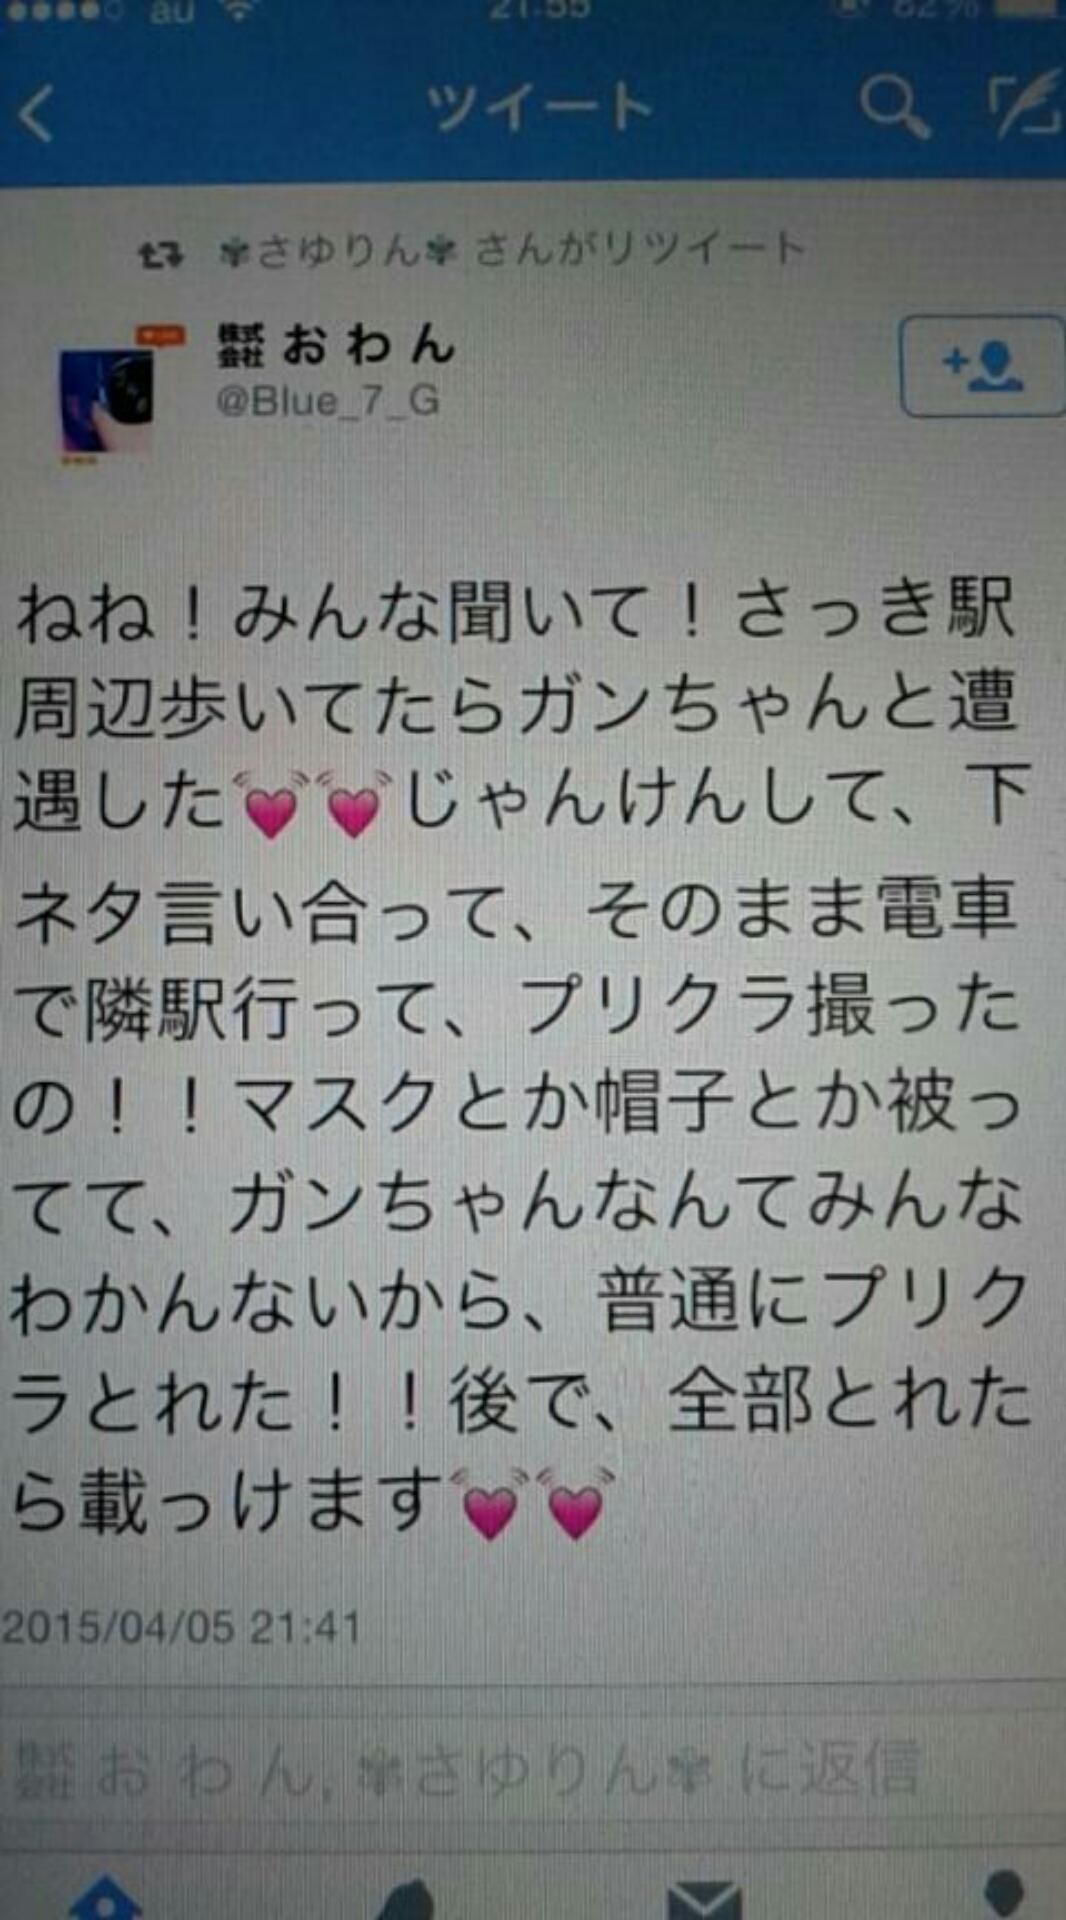 au 21:55 82%
ツイート
✾さゆりん✾ さんがリツイート
株式会社 お わ ん
@Blue_7_G
ねね！みんな聞いて！さっき駅
周辺歩いてたらガンちゃんと遭
遇した💓💓じゃんけんして、下
ネタ言い合って、そのまま電車
で隣駅行って、プリクラ撮った
の！！マスクとか帽子とか被っ
てて、ガンちゃんなんてみんな
わかんないから、普通にプリク
ラとれた！！後で、全部とれた
ら載っけます💓💓
2015/04/05 21:41
株式会社 お わ ん, ✾さゆりん✾ に返信